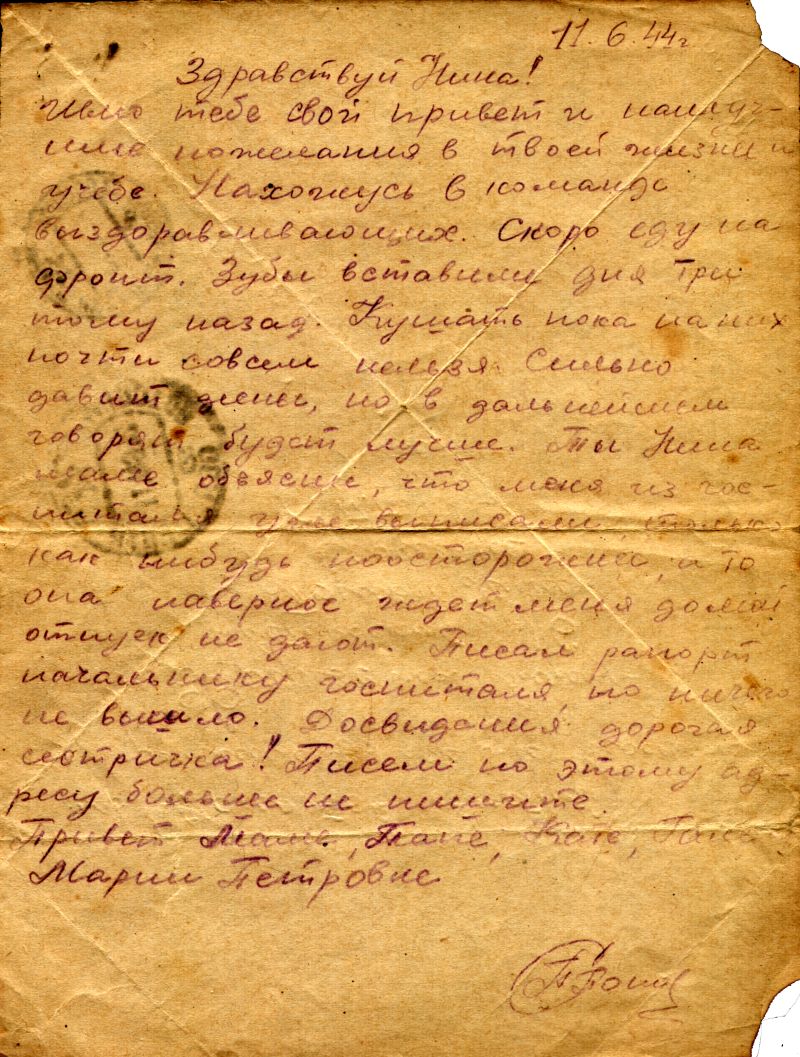 11.6.44г
Здравствуй Нина!
Шлю тебе свой привет и наилуч-
шие пожелания в твоей жизни и
учебе. Нахожусь в команде
выздоравливающих. Скоро еду на
фронт. Зубы вставили дня три
тому назад. Кушать пока на них
почти совсем нельзя. Сильно
давит десны, но в дальнейшем
говорят будет лучше. Ты Нина
маме объясни, что меня из гос-
питаля уже выписали, только
как нибудь поосторожней, а то
она наверное ждет меня домой
отпуск не дают. Писал рапорт
начальнику госпиталя, но ничего
не вышло. Досвидания дорогая
сестричка! Писем по этому ад-
ресу больше не пишите
Привет Маме, Папе, Кате,
Марии Петровне
ППопов